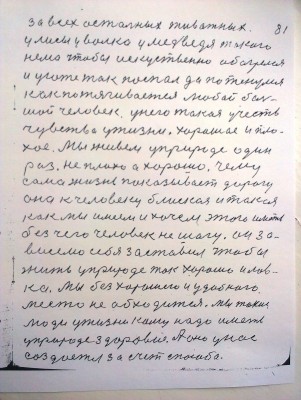 81
за всех остальных животных.
у лисы у волка у медведя такого
нема чтобы искуственно обогрелся
и уюте так поспал да потянулся
как потягивается любой боль-
шой человек. у него такая участь
чувства у жизни. хорошая и пло-
хое. Мы живем у природе один
раз. не плохо а хорошо. чему
сама жизнь показывает дорогу
она к человеку близкая и такая
как мы имеем и хочем этого иметь
без чего человек не шагу. он за-
висемо себя заставил чтобы
жить у природе так хорошо и лов-
ко. Мы без хорошего и удобного
место не обходится. мы такие
люди у жизни кому надо иметь
у природе здоровие. А оно у нас
создается за счет способа.